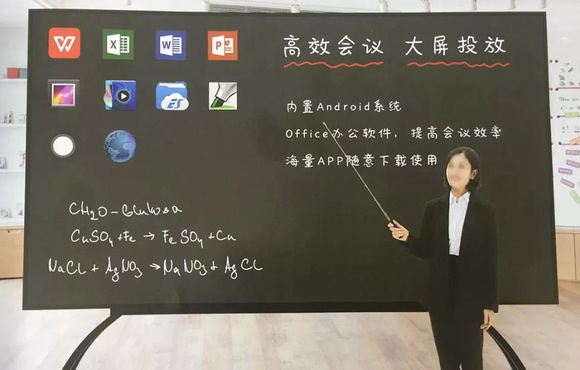 高效会议 大屏投放
内置Android系统
Office办公软件，提高会议效率
海量APP随意下载使用
CH2O-Glukosa
CuSO4+Fe → FeSO4+Cu
NaCl + AgNO3 → NaNO3 + AgCl